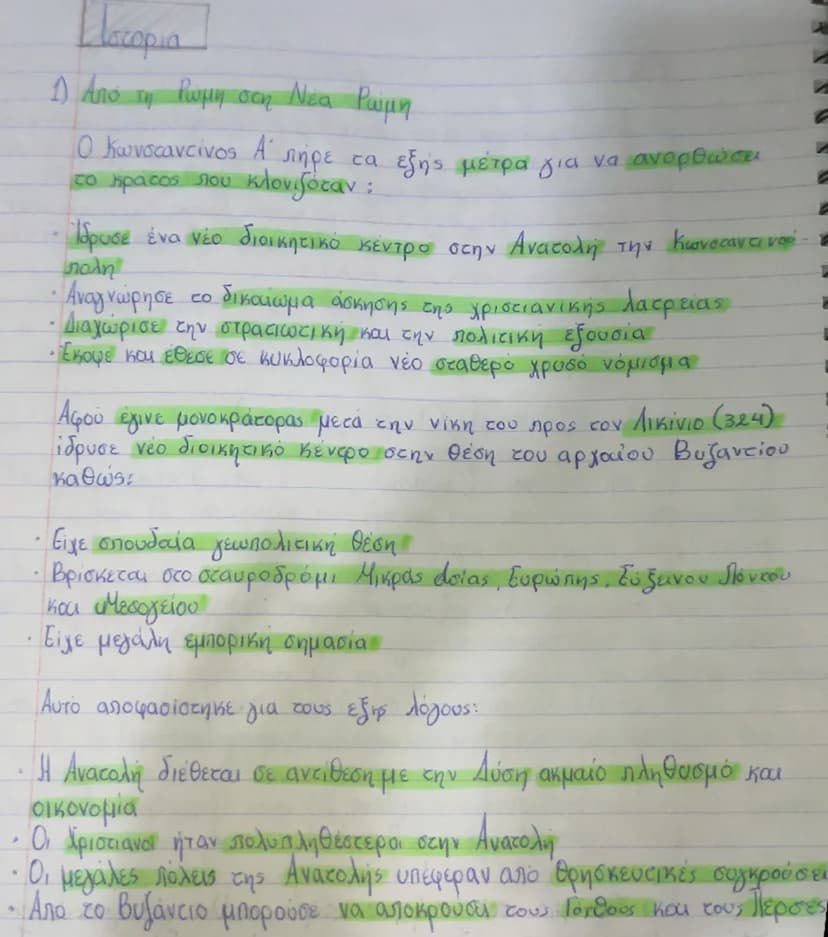 Ιστορία
1) Από τη Ρώμη στη Νέα Ρώμη
Ο Κωνσταντίνος Α' πήρε τα εξής μέτρα για να ανορθώσει
το κράτος που κλονιζόταν:
· Ίδρυσε ένα νέο διοικητικό κέντρο στην Ανατολή την Κωνσταντινού-
πολη
· Αναγνώρησε το δικαίωμα άσκησης της χριστιανικής λατρείας
· Διαχώρισε την στρατιωτική και την πολιτική εξουσία
· Έκοψε και έθεσε σε κυκλοφορία νέο σταθερό χρυσό νόμισμα
Αφού έγινε μονοκράτορας μετά την νίκη του προς τον Λικίνιο (324)
ίδρυσε νέο διοικητικό κέντρο στην θέση του αρχαίου Βυζαντίου
καθώς:
· Είχε σπουδαία γεωπολιτική θέση
· Βρίσκεται στο σταυροδρόμι Μικράς Ασίας, Ευρώπης, Εύξεινου Πόντου
και Μεσογείου
· Είχε μεγάλη εμπορική σημασία
Αυτό αποφασίστηκε για τους εξής λόγους:
· Η Ανατολή διέθεται σε αντίθεση με την Δύση ακμαίο πληθυσμό και
οικονομία
· Οι Χριστιανοί ήταν πολυπληθέστεροι στην Ανατολή
· Οι μεγάλες πόλεις της Ανατολής υπέφεραν από θρησκευτικές συγκρούσει
· Από το Βυζάντιο μπορούσε να αποκρούσει τους Γότθους και τους Πέρσες